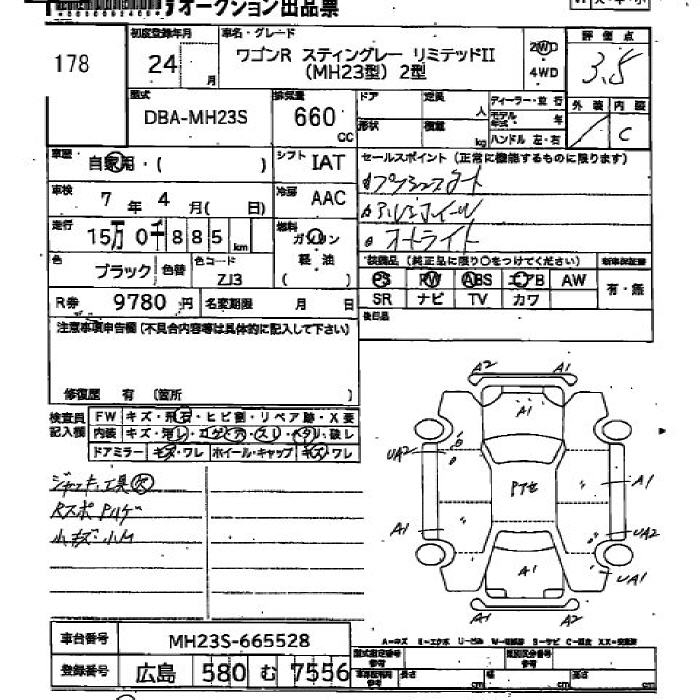 オークション出品票
178
初度登録年月 24 月
車名・グレード ワゴンR スティングレー リミテッドII
(MH23型) 2型
2WD
4WD
評価点 3.5
外装 内装 C
型式 DBA-MH23S
排気量 660 CC
ドア 定員 人
形状 積載 kg
ディーラー・並行
モデル年式 年
ハンドル 左・右
車歴 自家用・( )
シフト IAT
車検 7 年 4 月( 日)
冷房 AAC
走行 15万0千885 km
燃料 ガソリン
軽油
( )
色 ブラック 色替 色コード ZJ3
R券 9780 円 名変期限 月 日
セールスポイント (正常に機能するものに限ります)
プッシュスタート
アルミホイール
オートライト
装備品 (純正品に限り○をつけてください) 新車保証書
PS PW ABS エアB AW 有・無
SR ナビ TV カワ
後日品
注意事項申告欄 (不具合内容等は具体的に記入して下さい)
修復歴 有 (箇所 )
検査員記入欄
FW キズ・飛石・ヒビ割・リペア跡・X要
内装 キズ・汚レ・コゲ・穴・スレ・ヘタリ・破レ
ドアミラー キズ・ワレ ホイール・キャップ キズ・ワレ
ジャッキ,工具欠
小キズ・小凹
A2 A1
A1
UA2
A1
A1
UA2
UA1
A1
A1 A2
車台番号 MH23S-665528
登録番号 広島 580 む 7556
型式指定番号 参考
類別区分番号 参考
長さ cm 幅 cm 高さ cm